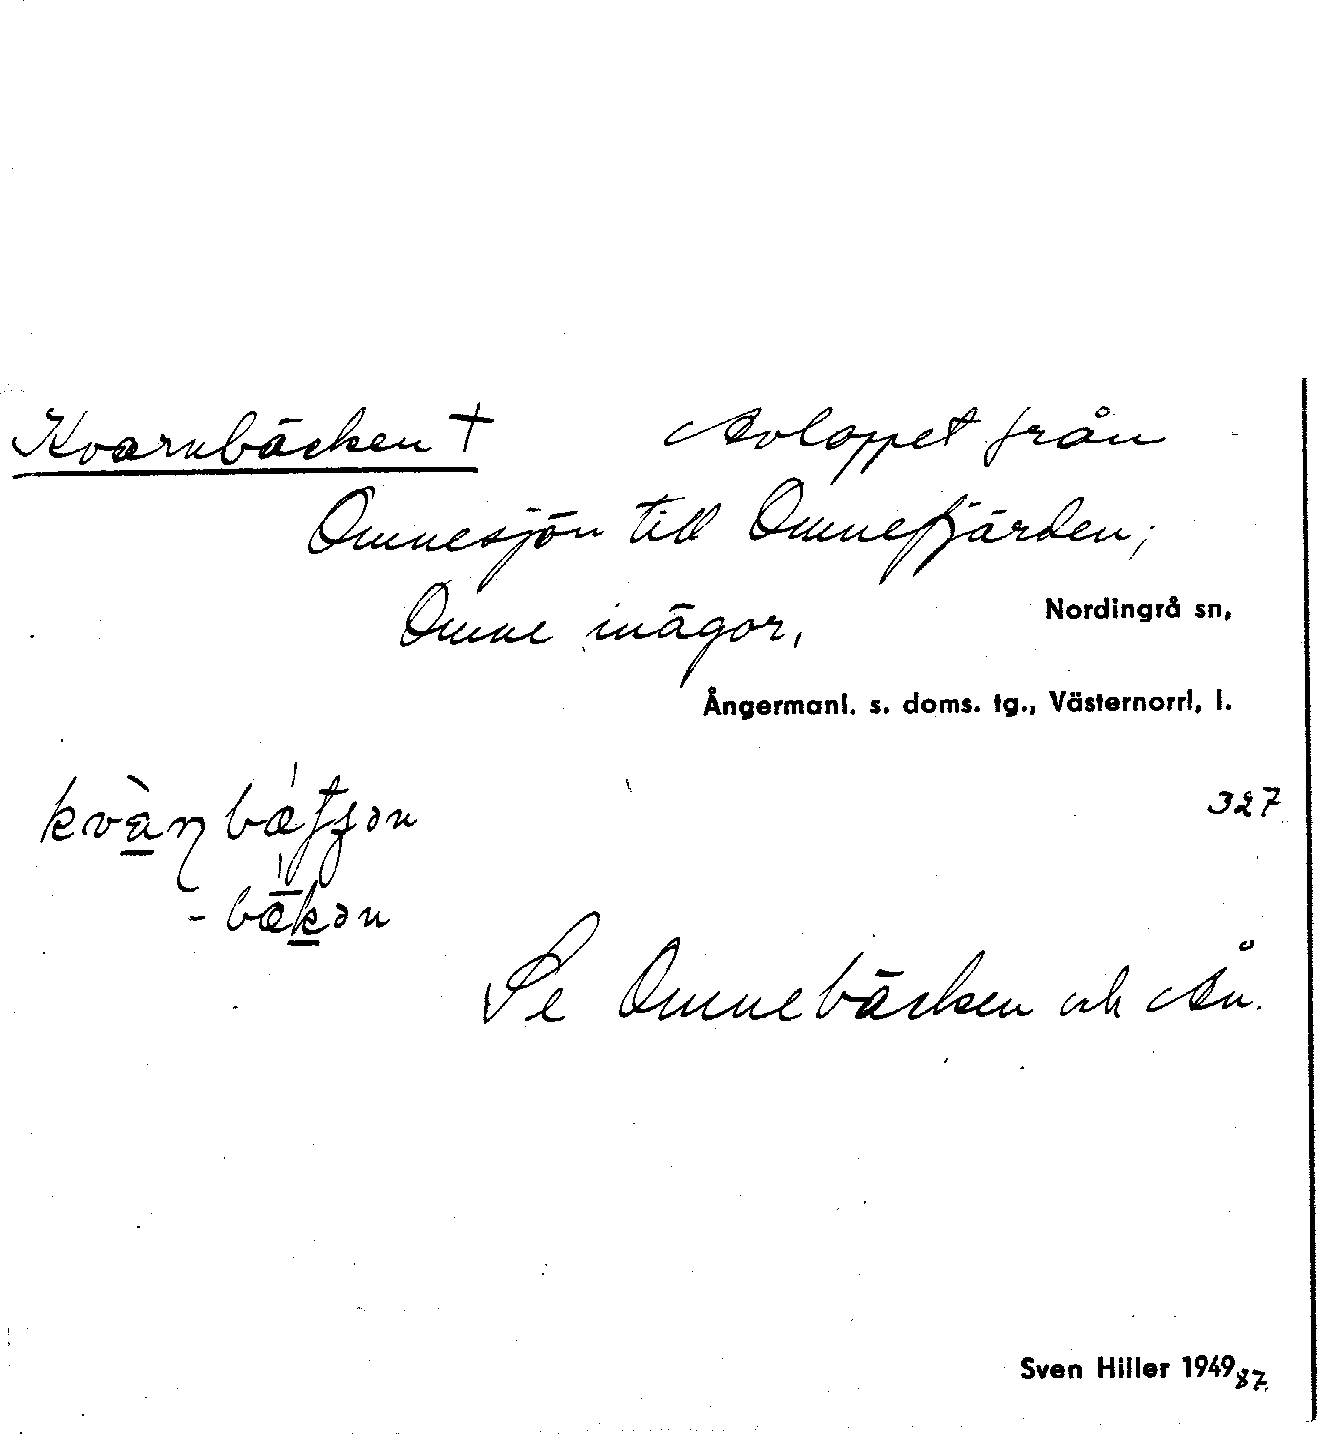 Kvarnbäcken † Avloppet från
Omnesjön till Omnefjärden;
Omne inägor, Nordingrå sn,
Ångermanl. s. doms. tg., Västernorrl. l.
327
-bækən
Se Omnebäcken och Ån.
Sven Hiller 1949 87